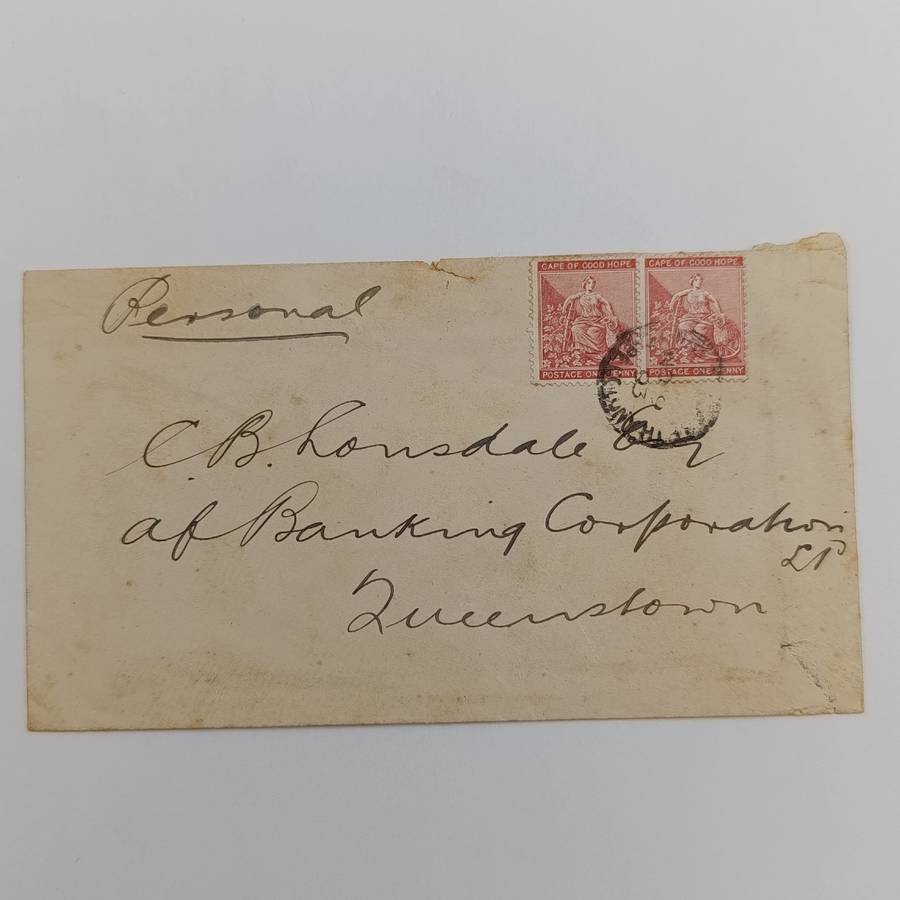 Personal
CAPE OF GOOD HOPE
POSTAGE ONE PENNY
CAPE OF GOOD HOPE
POSTAGE ONE PENNY
C. B. Lonsdale Esq
af Banking Corporation
Ld
Queenstown